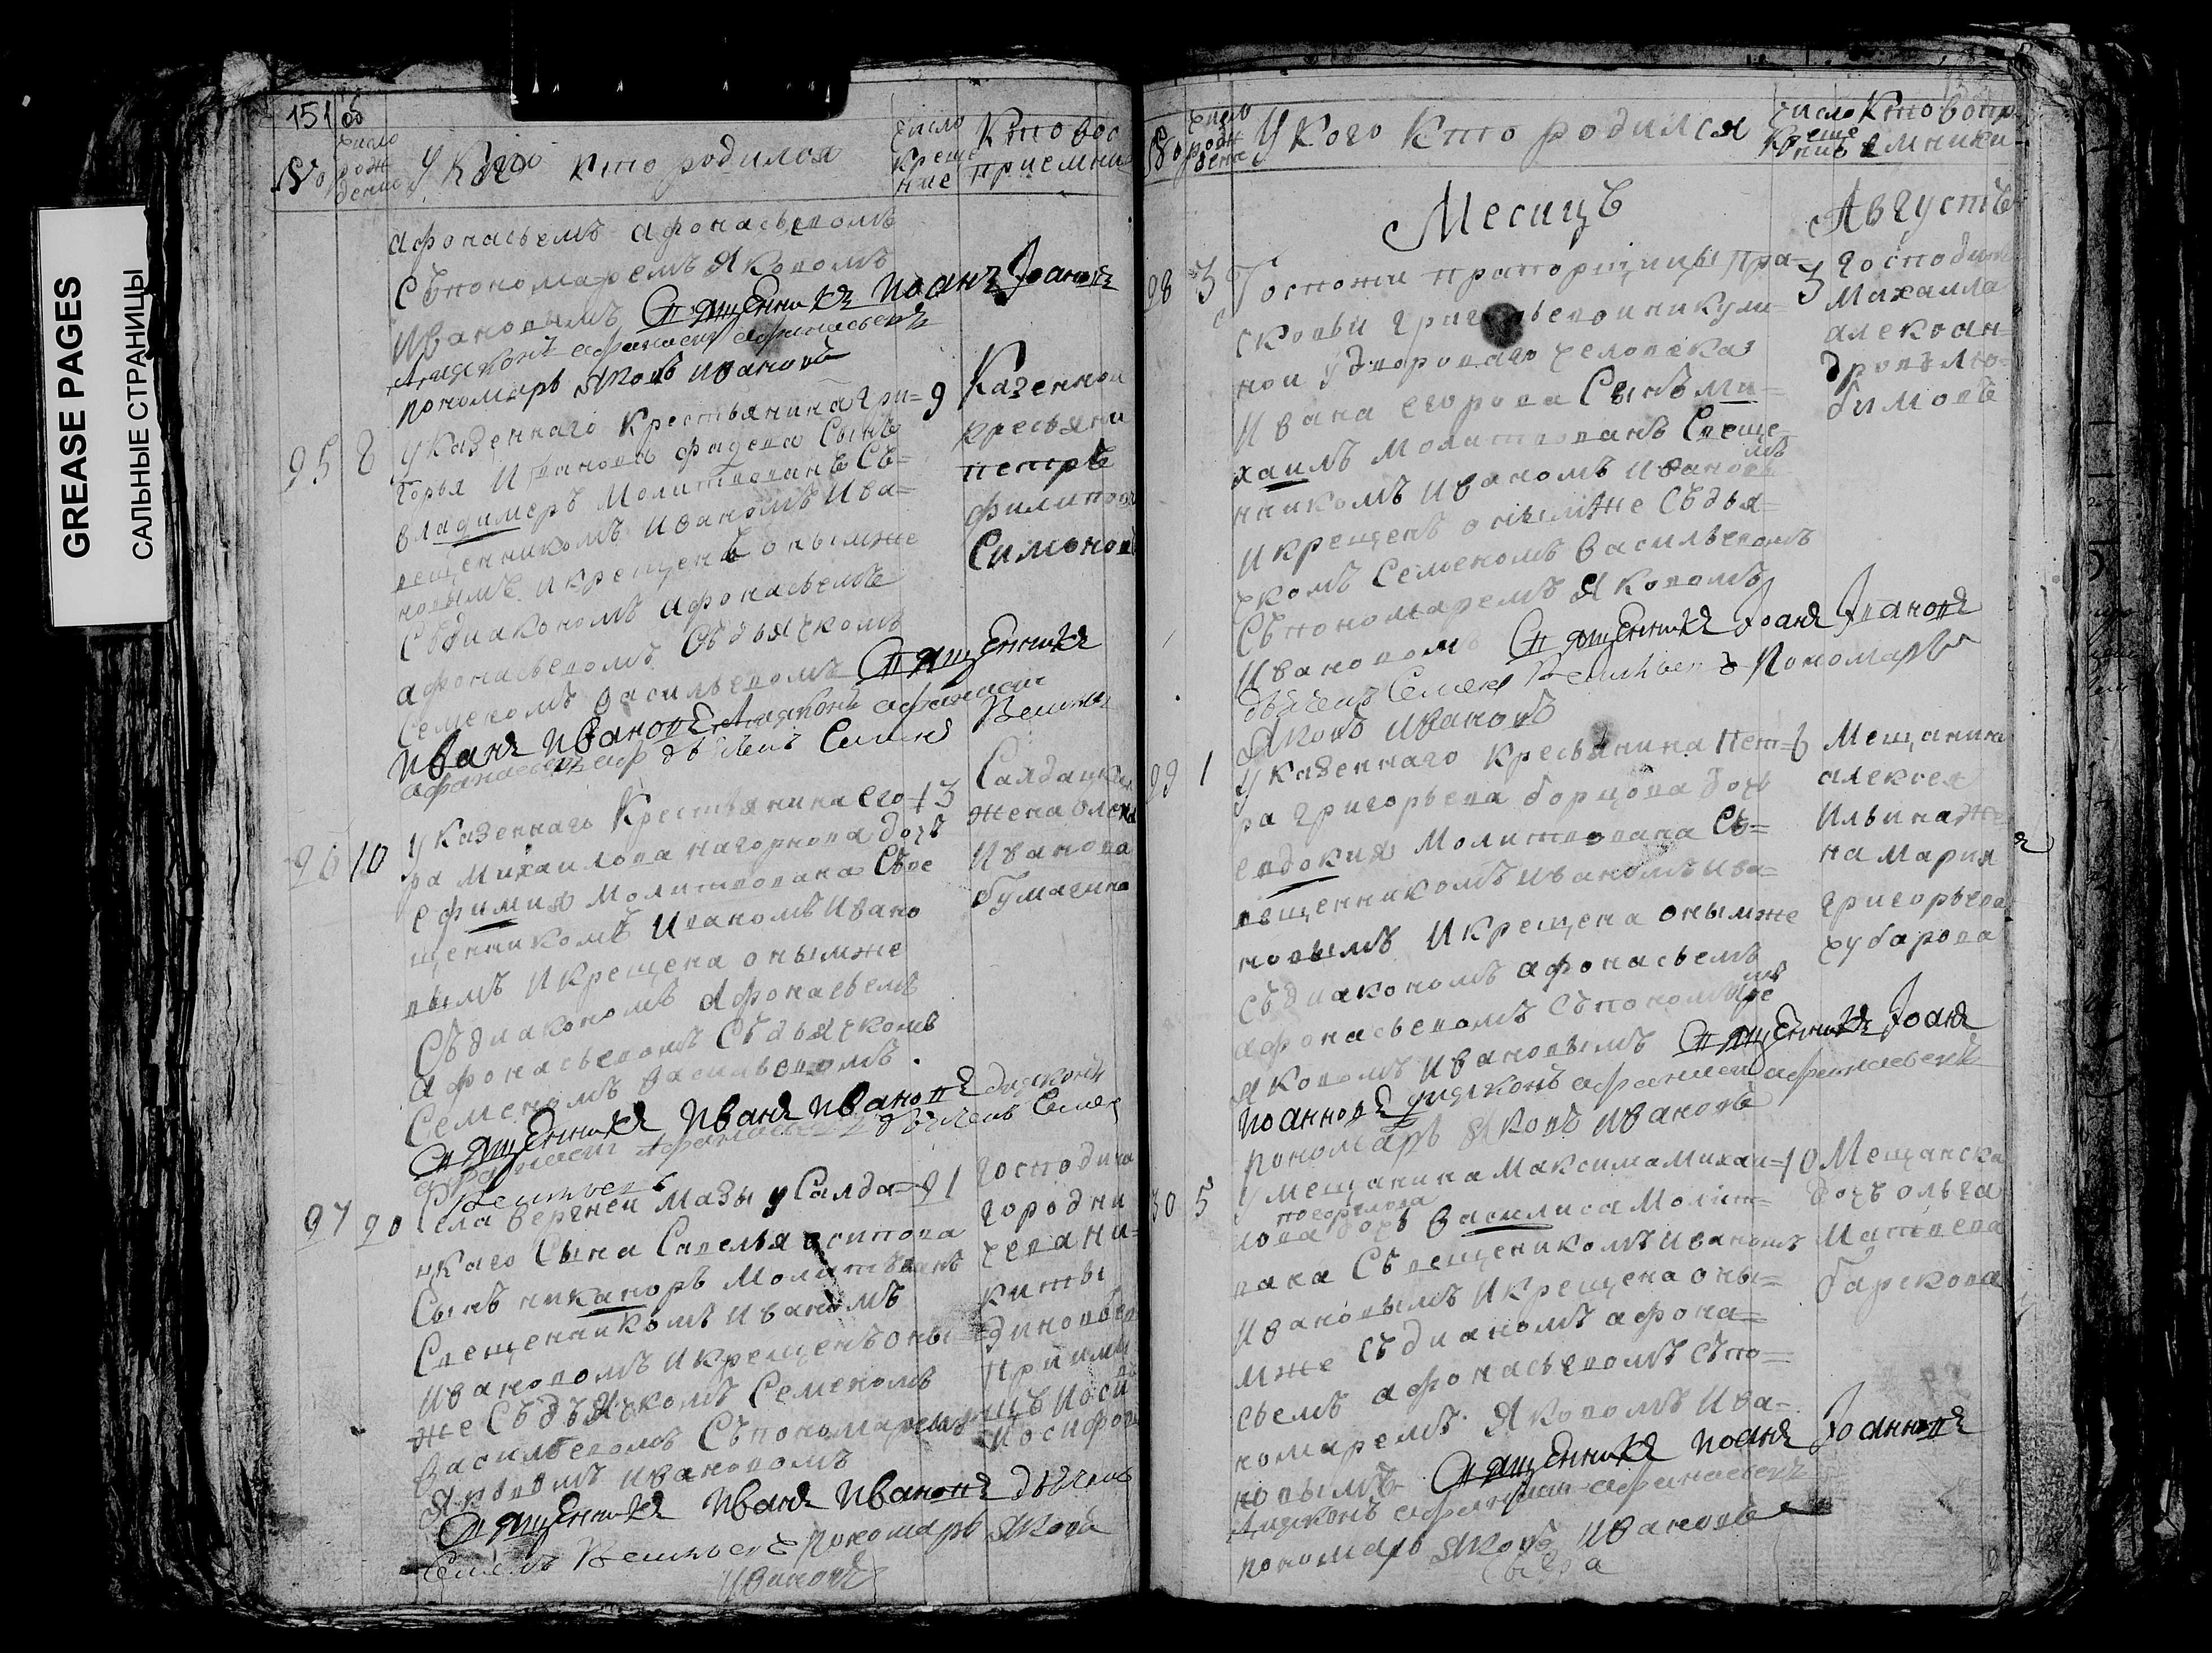 GREASE PAGES
САЛЬНЫЕ СТРАНИЦЫ
151об
No
число
рож
дение
У Кого кто родился
число
креще
ние
Кто вос
приемни
афонасьемъ афонасьевомъ
Съпономаремъ Яковомъ
Ивановымъ Священникъ Иоаннъ Иоановъ
Диаконъ афанасей афанасьевъ
пономарь Яковъ Ивановъ
95 8
У казеннаго Крестьянина гри=
горья Иванова фадеева Сынъ
владимеръ Молитвованъ Съ=
вещенникомъ Иваномъ Ива=
новымъ Икрещенъ онымже
Съдиакономъ Афонасьемъ
афонасьевомъ Съдьячкомъ
Семеномъ Васильевомъ Священникъ
Иванъ Ивановъ Диаконъ афанасей
афанасьевъ дьячекъ Семенъ
9
Казеннои
кресьяни
петръ
филипов
Симонов
96 10
У казеннаго Крестьянина его=
ра Михаилова нагорнова дочь
ефимия Молитвована Свое
щенникомъ Иваномъ Ивано
вымъ Икрещена онымже
Съдиакономъ Афонасьемъ
Афонасьевомъ Съдьячкомъ
Семеномъ Васильевомъ.
Священникъ Иванъ Ивановъ диаконъ
афанасей Афанасьевъ дьячекъ Семен
13
Салдацка
жена
Иванова
97 20
Села верхней Мазы у Салда=
цкаго Сына Савелья осипова
Сынъ никаноръ Молитвванъ
Свещенникомъ Иваномъ
Ивановомъ Икрещенъ оны=
же Съдьячкомъ Семеномъ
Васильевомъ Съпономаремъ
Яковомъ Ивановомъ
Священникъ Иванъ Ивановъ дьячекъ
пономарь Яковъ
Ивановъ
21
господина
городни
чева ни=
киты
No
число
рож
дение
У Кого Кто родился
число
креще
ние
Кто воспр
емники
Месицъ Августъ
98 3
Госпожи прапорщицы пра=
сковьи григорьевои никули=
нои удвороваго человека
Ивана егорова Сынъ ми=
хаилъ молитвованъ Свеще
нникомъ Иваномъ Ивановы
мъ
Икрещенъ онымже Съдья=
чкомъ Семеномъ Васильевомъ
Съпономаремъ Яковомъ
Ивановомъ Священникъ Иоанъ Иванов
дьячекъ Семенъ Васильевъ Пономарь
Яковъ Ивановъ
3
Господинъ
Михаила
александ
дровъ лю=
бимовъ
99 1
У казеннаго кресьянина Пет=
ра григорьева борцова дочь
евдокия Молитвована Съ=
вещенникомъ Иваномъ Ива=
новымъ Икрещена онымже
Съдиакономъ афонасьемъ
афонасьевомъ Съпономаре
мъ
Яковомъ Ивановымъ Священникъ Иоанъ
Иоанновъ диаконъ афанасей афанасьевъ
пономарь Яковъ Ивановъ
6
Мещанина
алексея
Ильина же
на Мария
григорьева
чубарова
30 5
У мещанина Максима Михаи=
лова дочь василиса Молит=
вана Съвещеникомъ Иваномъ
Ивановымъ Икрещена оны=
мже Съдианомъ афона=
сьемъ афонасьевомъ Съпо=
номаремъ Яковомъ Ива=
новымъ Священникъ Иоанъ Иоанновъ
Диаконъ афанасей афанасьевъ
пономарь Яковъ Ивановъ
10
Мещанска
дочь ольга
Матвева
барскова